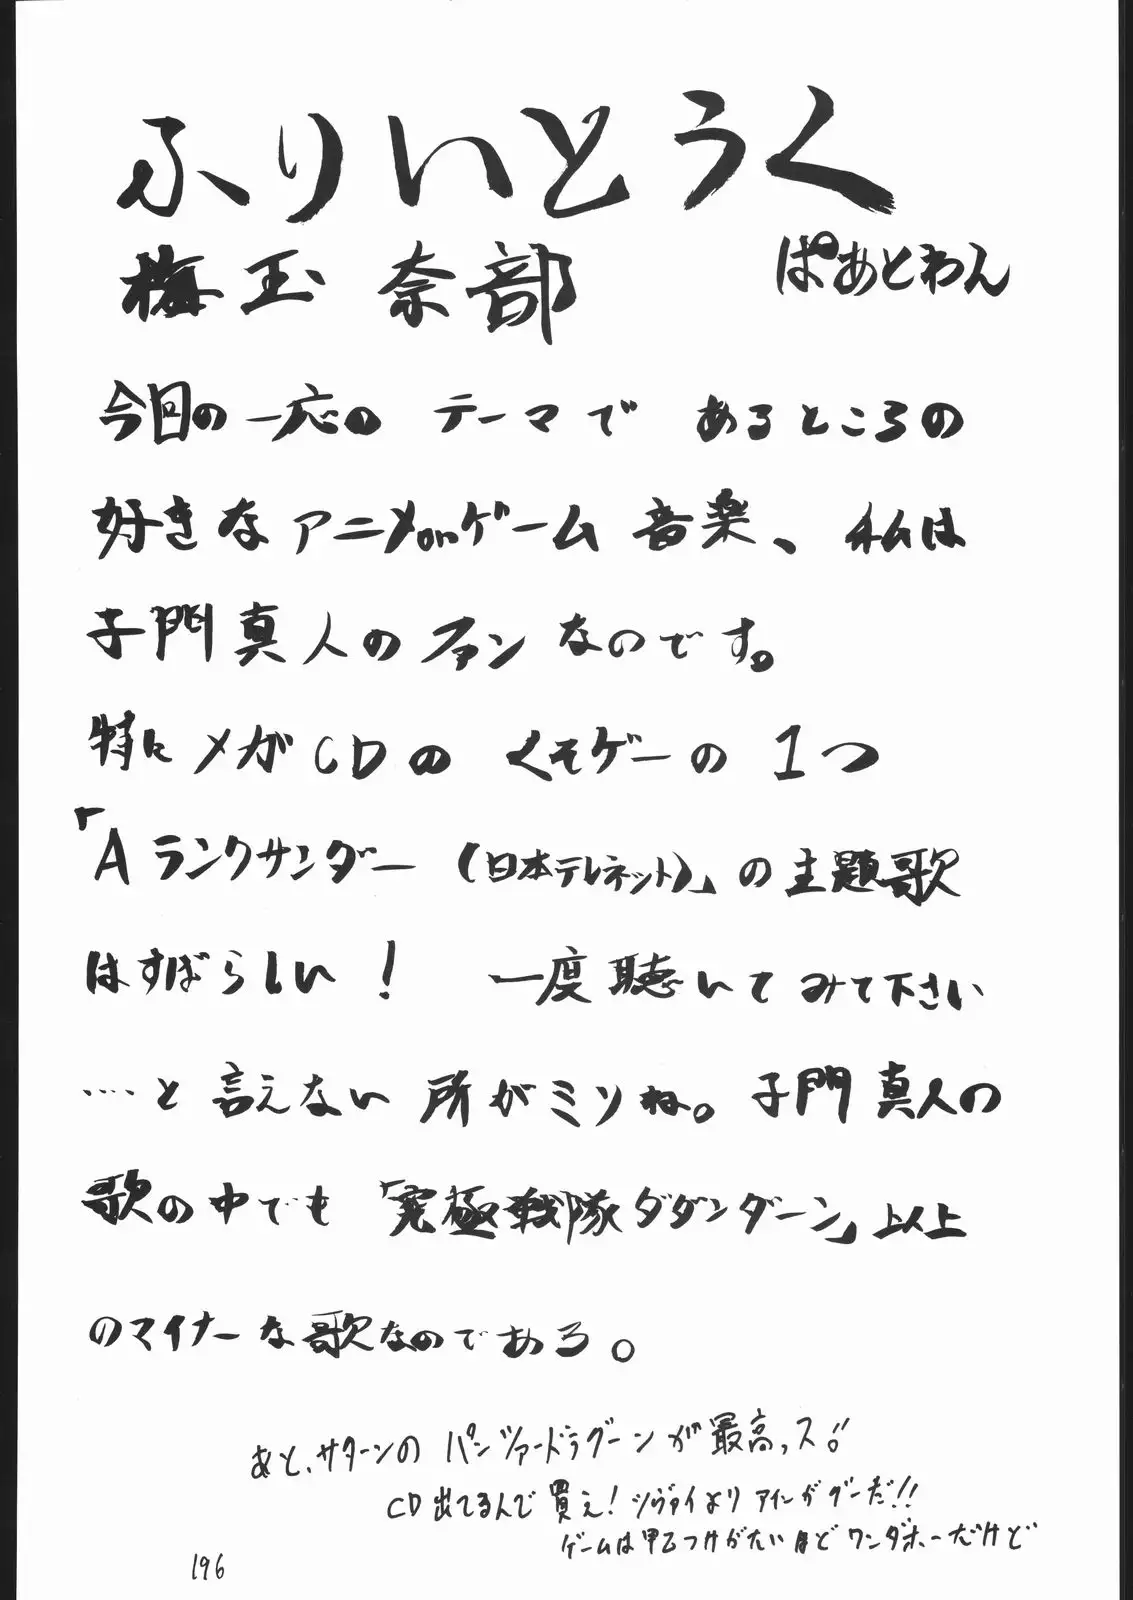 ふりいとうく
梅玉奈部
ぱあとわん
今回の一応の テーマで あるところの
好きなアニメorゲーム 音楽、私は
子門真人のファンなのです。
特にメガCDの くそゲーの 1つ
「Aランクサンダー(日本テレネット)」の主題歌
はすばらしい! 一度聴いてみて下さい
‥‥と言えない所がミソね。子門真人の
歌の中でも「究極戦隊ダダンダーン」以上
のマイナーな歌なのである。
あと、サターンの パンツァードラグーンが最高っス!!
CD出てるんで買え!シヴァイよりアインがグーだ!!
ゲームは甲乙つけがたいほど ワンダホーだけど
196